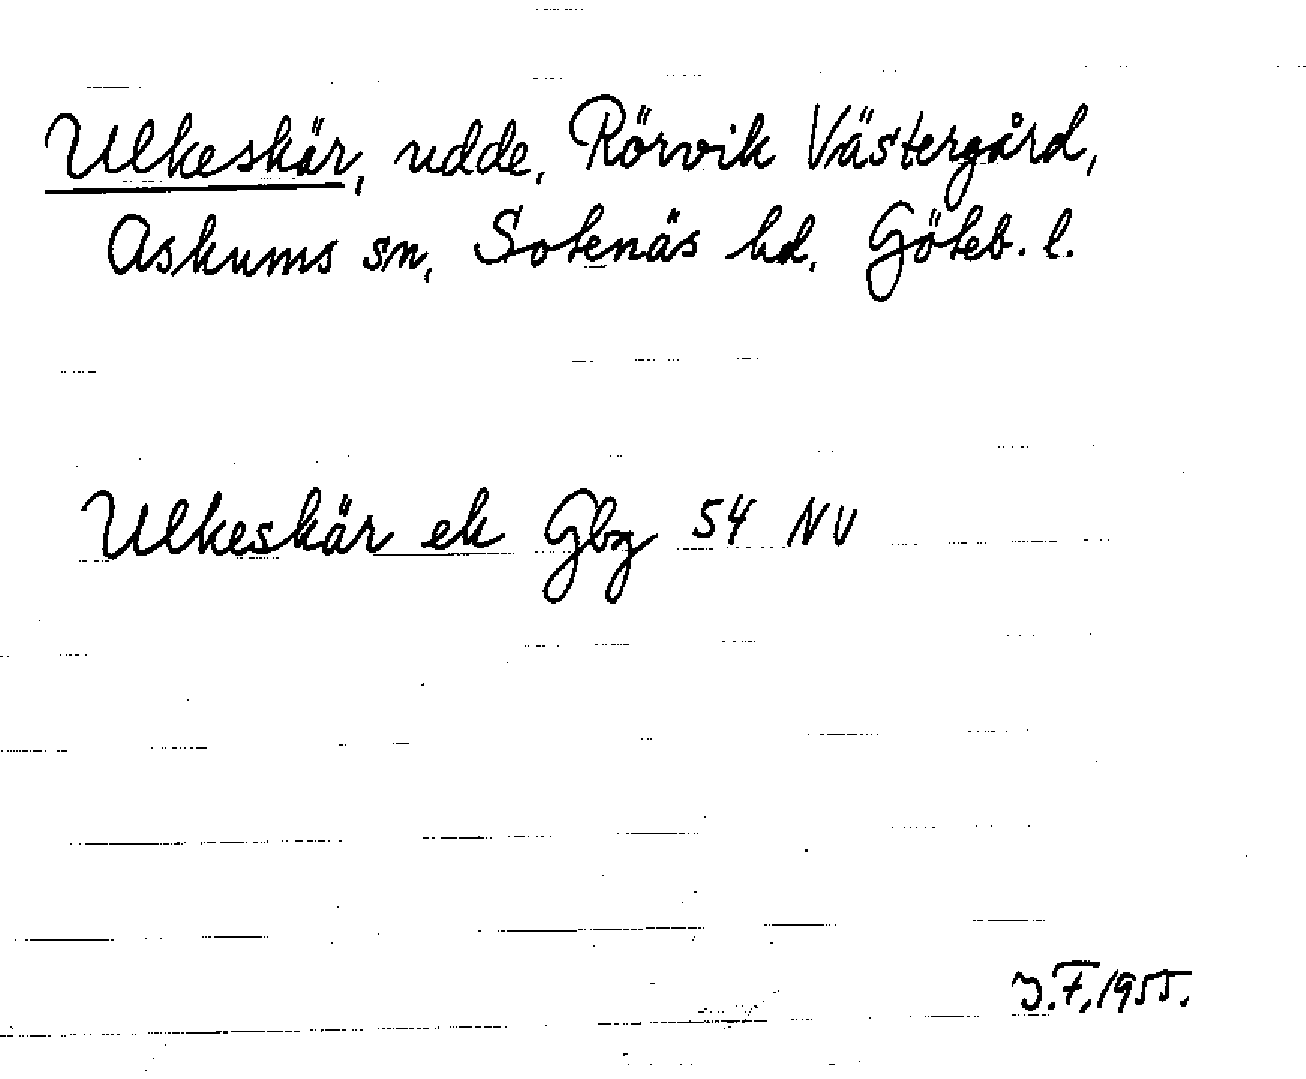 Ulkeskär, udde, Rörvik Västergård,
Askums sn, Sotenäs hd. Göteb. l.
Ulkeskär ek Gbg 54 NV
J.F. 1955.